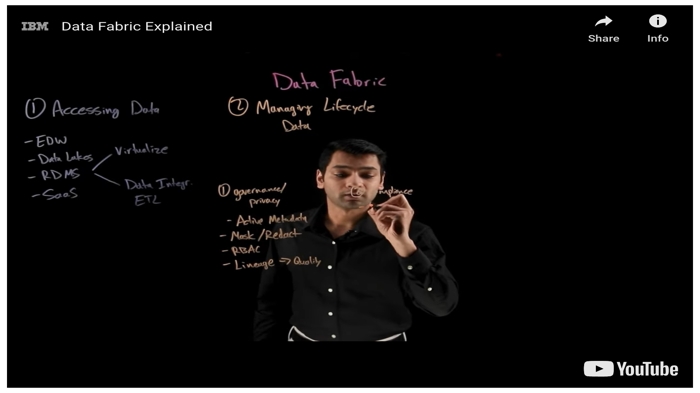 IBM Data Fabric Explained
Share
Info
Data Fabric
① Accessing Data
- EDW
- Data Lakes
- RDMS
- SaaS
Virtualize
Data Integr.
ETL
② Managing Lifecycle
Data
① governance/
privacy
- Active Metadata
- Mask/Redact
- RBAC
- Lineage ⇒ Quality
YouTube